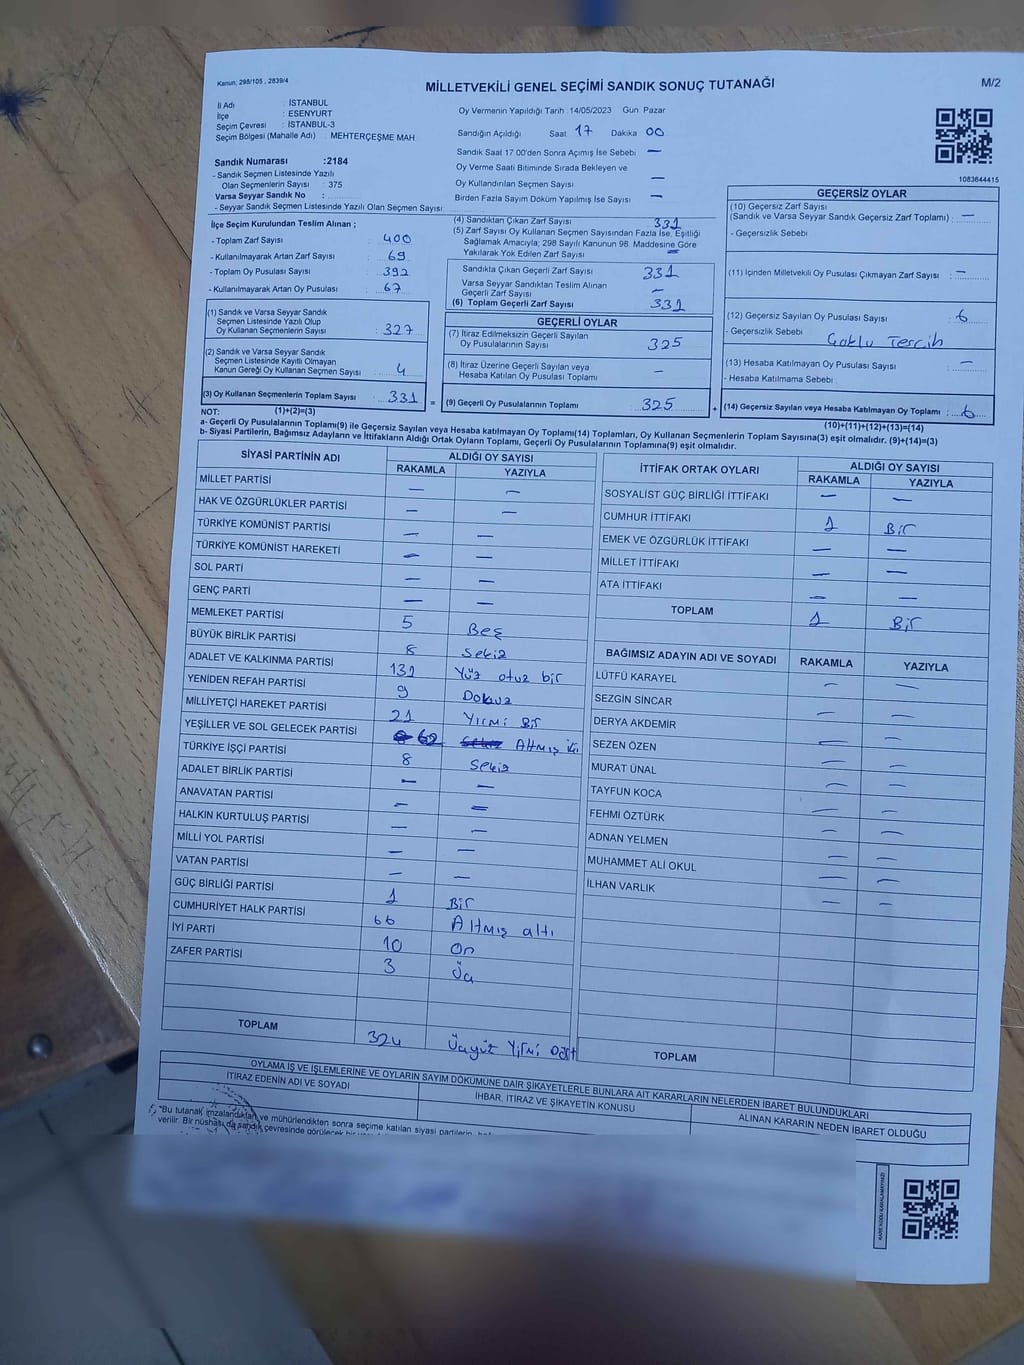 Kanun: 298/105 , 2839/4
MİLLETVEKİLİ GENEL SEÇİMİ SANDIK SONUÇ TUTANAĞI
M/2
İl Adı : İSTANBUL
İlçe : ESENYURT
Seçim Çevresi : İSTANBUL-3
Seçim Bölgesi (Mahalle Adı) : MEHTERÇEŞME MAH.
Sandık Numarası :2184
- Sandık Seçmen Listesinde Yazılı
Olan Seçmenlerin Sayısı : 375
Varsa Seyyar Sandık No :
- Seyyar Sandık Seçmen Listesinde Yazılı Olan Seçmen Sayısı:
Oy Vermenin Yapıldığı Tarih :14/05/2023 Gün: Pazar
Sandığın Açıldığı Saat 17 Dakika 00
Sandık Saat 17.00'den Sonra Açımış İse Sebebi : —
Oy Verme Saati Bitiminde Sırada Bekleyen ve
Oy Kullandırılan Seçmen Sayısı : —
Birden Fazla Sayım Döküm Yapılmış İse Sayısı : —
1083644415
İlçe Seçim Kurulundan Teslim Alınan ;
- Toplam Zarf Sayısı : 400
- Kullanılmayarak Artan Zarf Sayısı : 69
- Toplam Oy Pusulası Sayısı : 392
- Kullanılmayarak Artan Oy Pusulası : 67
(1) Sandık ve Varsa Seyyar Sandık
Seçmen Listesinde Yazılı Olup
Oy Kullanan Seçmenlerin Sayısı : 327
(2) Sandık ve Varsa Seyyar Sandık
Seçmen Listesinde Kayıtlı Olmayan
Kanun Gereği Oy Kullanan Seçmen Sayısı : 4
(3) Oy Kullanan Seçmenlerin Toplam Sayısı : 331
(1)+(2)=(3)
(4) Sandıktan Çıkan Zarf Sayısı 331
(5) Zarf Sayısı Oy Kullanan Seçmen Sayısından Fazla İse, Eşitliği
Sağlamak Amacıyla; 298 Sayılı Kanunun 98. Maddesine Göre
Yakılarak Yok Edilen Zarf Sayısı —
Sandıkta Çıkan Geçerli Zarf Sayısı 331
Varsa Seyyar Sandıktan Teslim Alınan
Geçerli Zarf Sayısı —
(6) Toplam Geçerli Zarf Sayısı 331
GEÇERLİ OYLAR
(7) İtiraz Edilmeksizin Geçerli Sayılan
Oy Pusulalarının Sayısı 325
(8) İtiraz Üzerine Geçerli Sayılan veya
Hesaba Katılan Oy Pusulası Toplamı —
= (9) Geçerli Oy Pusulalarının Toplamı 325
GEÇERSİZ OYLAR
(10) Geçersiz Zarf Sayısı
(Sandık ve Varsa Seyyar Sandık Geçersiz Zarf Toplamı) : —
- Geçersizlik Sebebi
(11) İçinden Milletvekili Oy Pusulası Çıkmayan Zarf Sayısı : —
(12) Geçersiz Sayılan Oy Pusulası Sayısı : 6
- Geçersizlik Sebebi Çoklu Tercih
(13) Hesaba Katılmayan Oy Pusulası Sayısı : —
- Hesaba Katılmama Sebebi
+ (14) Geçersiz Sayılan veya Hesaba Katılmayan Oy Toplamı : 6
(10)+(11)+(12)+(13)=(14)
NOT:
a- Geçerli Oy Pusulalarının Toplamı(9) ile Geçersiz Sayılan veya Hesaba katılmayan Oy Toplamı(14) Toplamları, Oy Kullanan Seçmenlerin Toplam Sayısına(3) eşit olmalıdır. (9)+(14)=(3)
b- Siyasi Partilerin, Bağımsız Adayların ve İttifakların Aldığı Ortak Oyların Toplamı, Geçerli Oy Pusulalarının Toplamına(9) eşit olmalıdır.
SİYASİ PARTİNİN ADI ALDIĞI OY SAYISI
RAKAMLA YAZIYLA
MİLLET PARTİSİ — —
HAK VE ÖZGÜRLÜKLER PARTİSİ — —
TÜRKİYE KOMÜNİST PARTİSİ — —
TÜRKİYE KOMÜNİST HAREKETİ — —
SOL PARTİ — —
GENÇ PARTİ — —
MEMLEKET PARTİSİ 5 Beş
BÜYÜK BİRLİK PARTİSİ 8 Sekiz
ADALET VE KALKINMA PARTİSİ 131 Yüz otuz bir
YENİDEN REFAH PARTİSİ 9 Dokuz
MİLLİYETÇİ HAREKET PARTİSİ 21 Yirmi Bir
YEŞİLLER VE SOL GELECEK PARTİSİ 62 Altmış iki
TÜRKİYE İŞÇİ PARTİSİ 8 Sekiz
ADALET BİRLİK PARTİSİ — —
ANAVATAN PARTİSİ — —
HALKIN KURTULUŞ PARTİSİ — —
MİLLİ YOL PARTİSİ — —
VATAN PARTİSİ — —
GÜÇ BİRLİĞİ PARTİSİ 1 Bir
CUMHURİYET HALK PARTİSİ 66 Altmış altı
İYİ PARTİ 10 On
ZAFER PARTİSİ 3 Üç
TOPLAM 324 Üçyüz Yirmi Dört
İTTİFAK ORTAK OYLARI ALDIĞI OY SAYISI
RAKAMLA YAZIYLA
SOSYALİST GÜÇ BİRLİĞİ İTTİFAKI — —
CUMHUR İTTİFAKI 1 Bir
EMEK VE ÖZGÜRLÜK İTTİFAKI — —
MİLLET İTTİFAKI — —
ATA İTTİFAKI — —
TOPLAM 1 Bir
BAĞIMSIZ ADAYIN ADI VE SOYADI RAKAMLA YAZIYLA
LÜTFÜ KARAYEL — —
SEZGİN SİNCAR — —
DERYA AKDEMİR — —
SEZEN ÖZEN — —
MURAT ÜNAL — —
TAYFUN KOCA — —
FEHMİ ÖZTÜRK — —
ADNAN YELMEN — —
MUHAMMET ALİ OKUL — —
İLHAN VARLIK — —
TOPLAM
OYLAMA İŞ VE İŞLEMLERİNE VE OYLARIN SAYIM DÖKÜMÜNE DAİR ŞİKAYETLERLE BUNLARA AİT KARARLARIN NELERDEN İBARET BULUNDUKLARI
İTİRAZ EDENİN ADI VE SOYADI
İHBAR, İTİRAZ VE ŞİKAYETİN KONUSU
ALINAN KARARIN NEDEN İBARET OLDUĞU
"Bu tutanak imzalandıktan ve mühürlendikten sonra seçime katılan siyasi partilerin,
verilir. Bir nüshası da sandık çevresinde görülecek bir